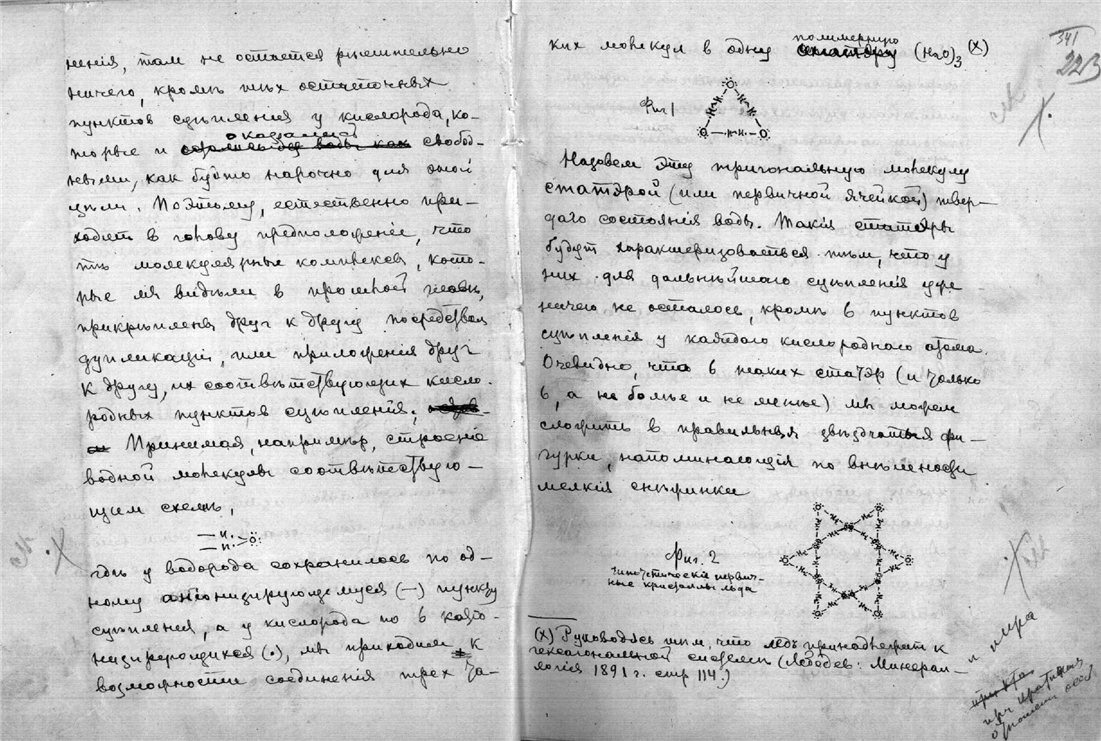 ненія, там не остается рѣшительно
ничего, кромѣ тѣх остаточных
пунктов сцѣпленія у кислорода, ко-
торые и оказались свобод-
ными, как будто нарочно для этой
цѣли. Поэтому, естественно при-
ходит в голову предположеніе, что
тѣ молекулярные комплексы, кото-
рые мы видѣли в прошлой главѣ,
прикрѣплены друг к другу посредством
дупликаціи, или приложенія друг
к другу, их соотвѣтствующих кисло-
родных пунктов сцѣпленія.
Принимая, напримѣр, строеніе
водной молекулы соотвѣтствую-
щим схемѣ,
— H.
— H. >O
гдѣ у водорода сохранилось по од-
ному анионизирующемуся (—) пункту
сцѣпленія, а у кислорода по 6 катио-
низирующихся (•), мы приходим к
возможности соединенія трех та-
ких молекул в одну полимерную (H2O)3 (X)
341
223
Фиг. 1
Назовем эту тригональную молекулу
статэрой (или первичной ячейкой) твер-
даго состоянія воды. Такія статэры
будут характеризоваться тѣм, что у
них для дальнѣйшаго сцѣпленія уже
ничего не осталось, кромѣ 6 пунктов
сцѣпленія у каждаго кислороднаго атома.
Очевидно, что 6 таких статэр (и только
6, а не болѣе и не менѣе) мы можем
сложить в правильныя звѣздчатыя фи-
гурки, напоминающія по внѣшности
мелкія снѣжинки
Фиг. 2
гипотетическіе первич-
ные кристаллы льда
(X) Руководясь тѣм, что ледъ принадлежит к
гексагональной системѣ (Лебедев: Минерал-
логія 1891 г. стр 114.)